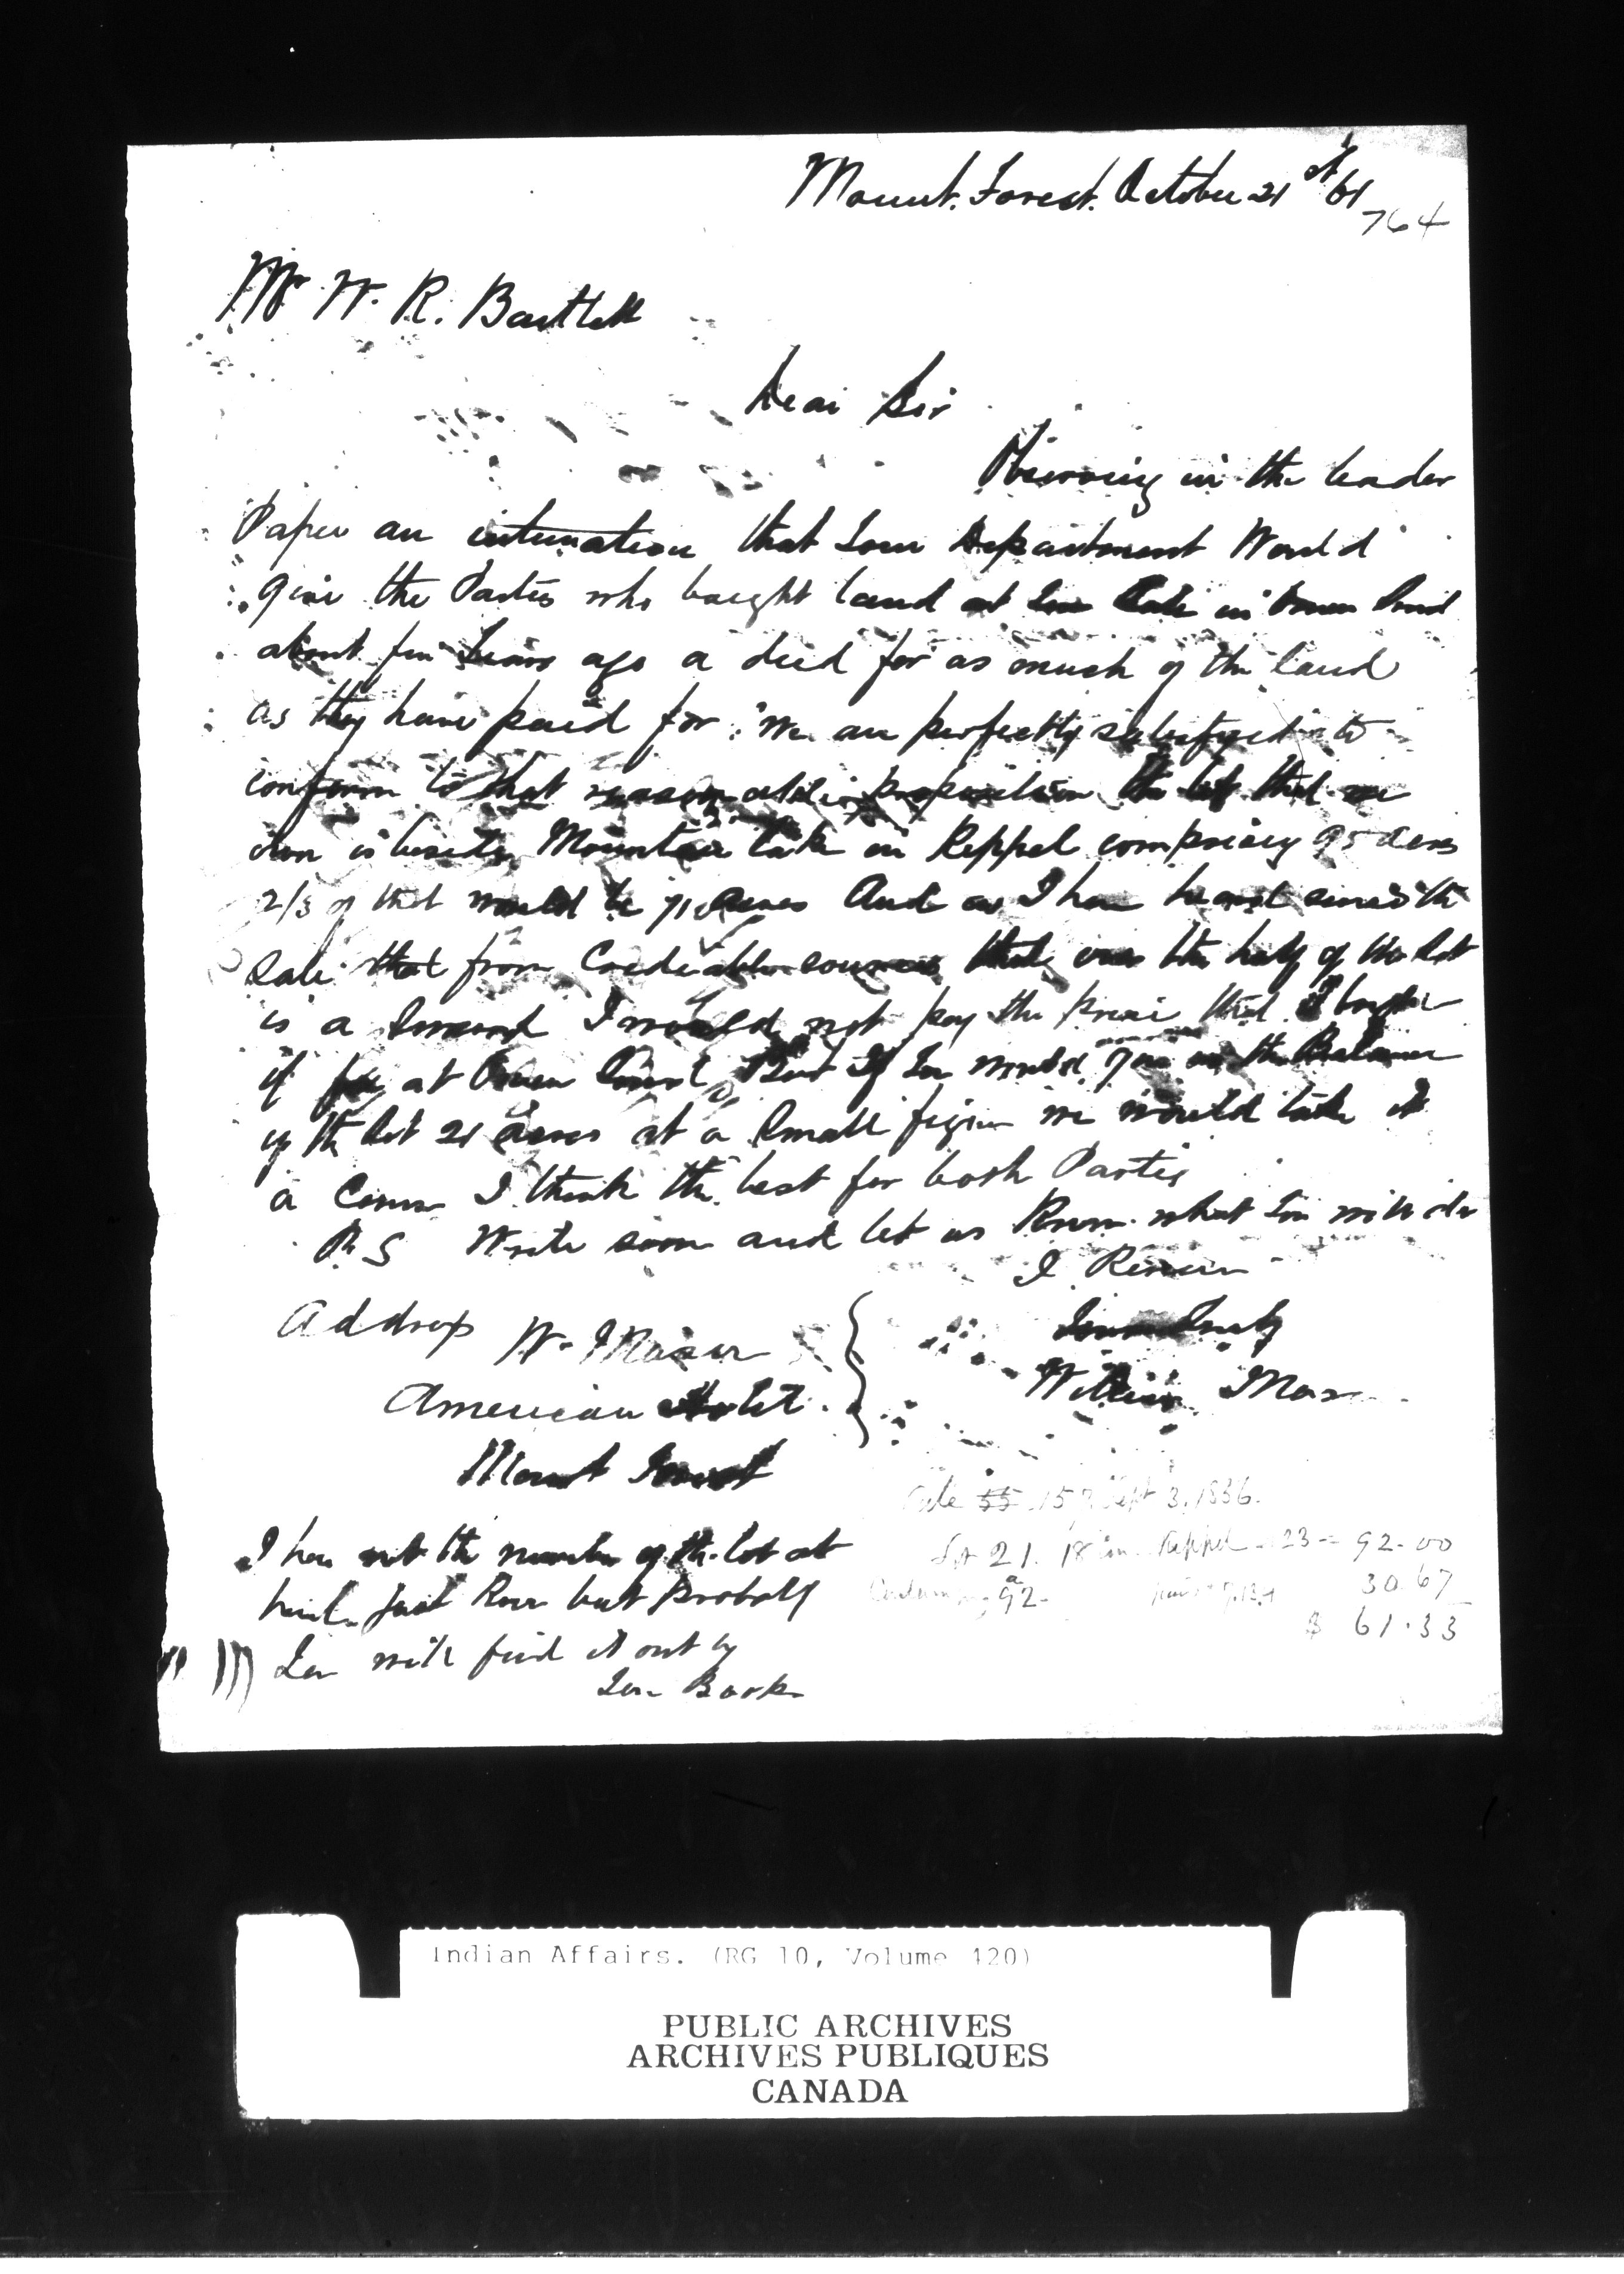 Mount. Forest. October 21st /61
764
Mr W. R. Bartlett
Dear Sir
Observing in the leader
Paper an intimation that Your Department Would
give the Parties who bought land at Sale in Owen Sound
about Years ago a deed for as much of the land
as they have paid for. We are perfectly satisfyed to
conform to that reasonable proposition the lot that we
own is beside Mountain lake in Keppel comprising 95 acres
2/3 of that would be 71 acres And as I have heard since the
Sale that from Crediable sources that over the half of the lot
is a I would not pay the price that I bought
it for at Owen Sound But If You would give us the Balance
of the lot 21 acres at a Small figure we would take it
a I think the best for both Parties
P. S Write soon and let us Know what You will do
I Remain
Yours Truly
William
Address W.
American Hotel
Mount Forest
Sale 55 15 Sept 3. 1856.
Lot 21. 18 Con Keppel 23 - 92.00
30.67
92
$ 61.33
I have not the number of the lot at
hand just Now but probably
You will find it out by
Your Book
Indian Affairs. (RG 10, Volume 420)
PUBLIC ARCHIVES
ARCHIVES PUBLIQUES
CANADA